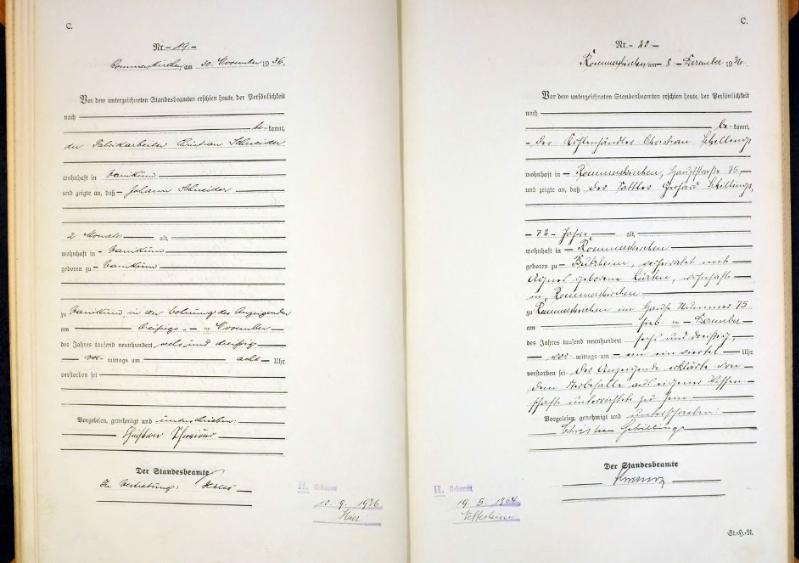 C.
Nr. 19.
Rommerskirchen, am 30. November 1936.
Vor dem unterzeichneten Standesbeamten erschien heute, der Persönlichkeit
nach
be= kannt,
der Fabrikarbeiter Christian Schneider
wohnhaft in Vanikum
und zeigte an, daß Johann Schneider
2 Monate alt,
wohnhaft in Vanikum
geboren zu Vanikum
zu Vanikum in der Wohnung des Anzeigenden
am dreißigsten November
des Jahres tausend neunhundert sechs und dreißig
vor mittags um acht Uhr
verstorben sei
Vorgelesen, genehmigt und unterschrieben:
Schneider
Der Standesbeamte
In Vertretung:
H. Geboren
9. 1936
C.
Nr. 20
Rommerskirchen, am 8. Dezember 1936.
Vor dem unterzeichneten Standesbeamten erschien heute, der Persönlichkeit
nach
be= kannt,
der Christian Schillings
wohnhaft in Rommerskirchen, Hauptstraße 75,
und zeigte an, daß der Sattler Gerhard Schillings,
72 Jahre alt,
wohnhaft in Rommerskirchen
geboren zu verheiratet mit
Agnes geborene wohnhaft
in Rommerskirchen
zu Rommerskirchen im Hause Nummer 75
am Dezember
des Jahres tausend neunhundert sechs und dreißig,
vor mittags um ein einviertel Uhr
verstorben sei. Der Anzeigende erklärte von
dem Sterbefalle aus eigener Wissen-
schaft unterrichtet zu sein.
Vorgelesen, genehmigt und unterschrieben:
Christian Schillings
Der Standesbeamte
H.
19. 5. 1864
St.H.N.